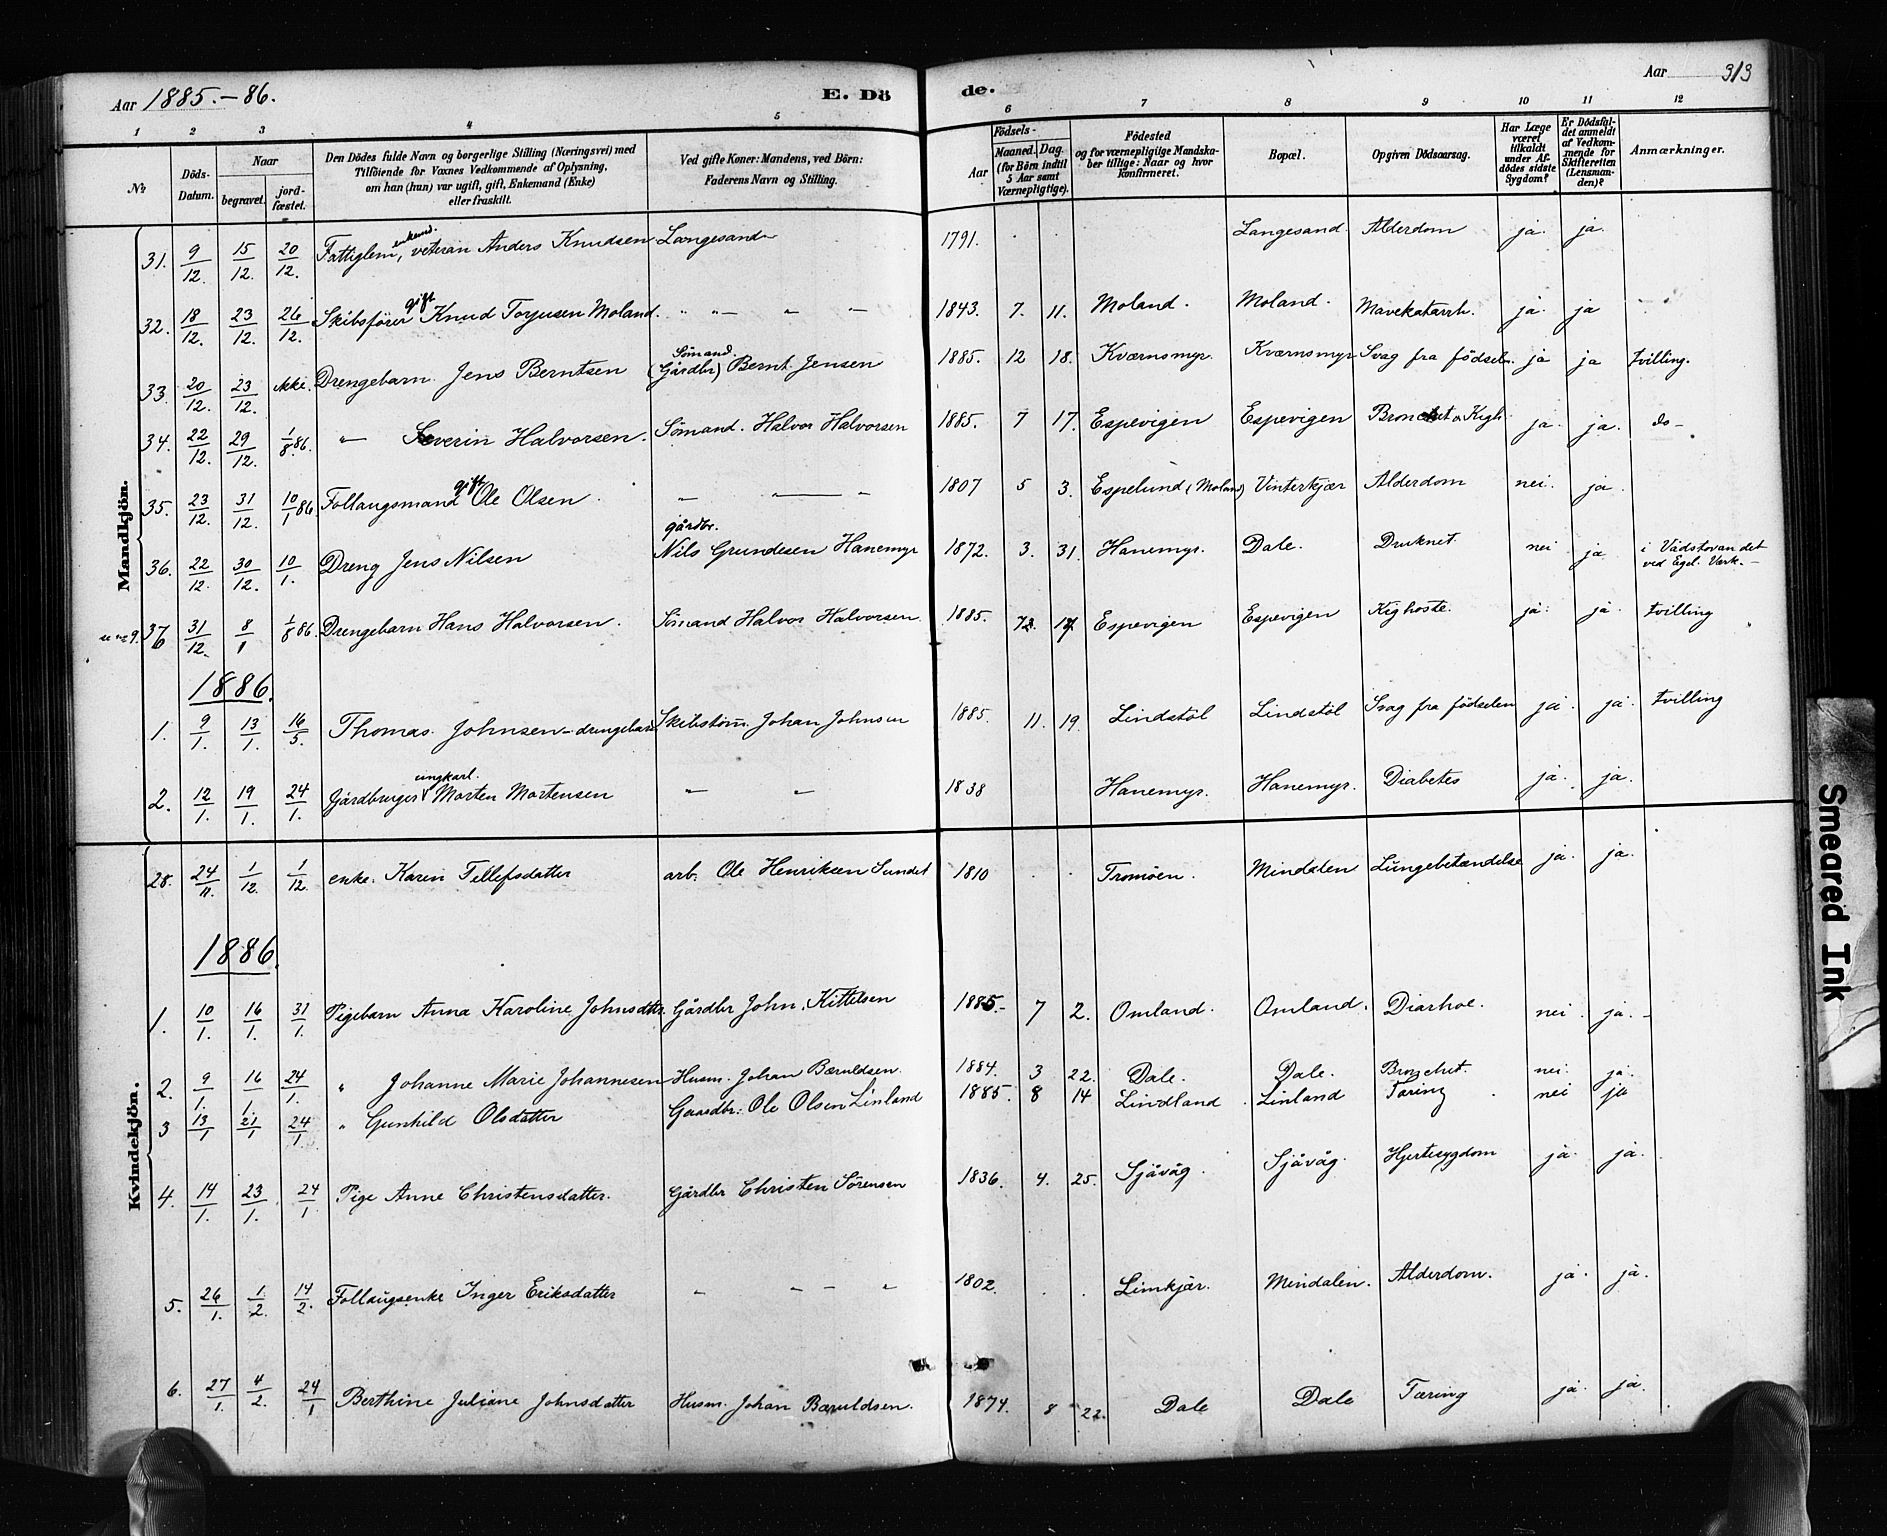 Aar 1885.-86.
E. Dö de.
Aar 313
1 2 3 4 5 6 7 8 9 10 11 12
№
Döds-Datum.
Naar
begravet.
jord-fæstet.
Den Dödes fulde Navn og borgerlige Stilling (Næringsvei) med
Tilföiende for Voxnes Vedkommende af Oplysning,
om han (hun) var ugift, gift, Enkemand (Enke)
eller fraskilt.
Ved gifte Koner: Mandens, ved Börn:
Faderens Navn og Stilling.
Födsels-
Aar
Maaned. Dag.
(for Börn indtil
5 Aar samt
Værnepligtige).
Födested
og for værnepligtige Mandska-
ber tillige: Naar og hvor
konfirmeret.
Bopæl.
Opgiven Dödsaarsag.
Har Læge
været
tilkaldt
under Af-
dödes sidste
Sygdom?
Er Dödsfal-
det anmeldt
af Vedkom-
mende for
Skifteretten
(Lensman-
den)?
Anmærkninger.
Mandkjön.
31. 9/12. 15/12. 20/12. Fattiglem, enkemd. veteran Anders Knudsen Langesand 1791. Langesand. Alderdom ja. ja.
32. 18/12. 23/12. 26/12. Skibsfører gift Knud Torjusen Moland. 1843. 7. 11. Moland. Moland. Mavekatarrh. ja. ja
33. 20/12. 23/12. ikke. Drengebarn. Jens Berntsen Sömand. (Gårdbr) Bernt Jensen 1885. 12 18. Kværnsmyr. Kværnsmyr Svag fra födselen. ja ja tvilling.
34. 22/12. 29/12. 1/8 86. " Severin Halvorsen. Sömand. Halvor Halvorsen 1885. 7 17. Espevigen Espevigen Bronchit o. Kigh. ja. ja. do-
35. 23/12. 31/12. 10/1 86. Follaugsmand gift Ole Olsen. 1807 5 3. Espelund (Moland) Vinterkjær Alderdom nei. ja.
36. 22/12. 30/12. 10/1. Dreng Jens Nilsen gårdbr. Nils Grundesen Hanemyr 1872. 3. 31. Hanemyr. Dale. Druknet. nei ja. i Vådstovandet
ved Egel. Værk.-
37 31/12. 8/1 1/8 86. Drengebarn Hans Halvorsen. Sömand Halvor Halvorsen. 1885. 7 17 Espevigen Espevigen Kighoste. ja. ja. tvilling
1886.
1. 9/1. 13/1. 16/5. Thomas. Johnsen - drengebarn Skibstöm. Johan Johnsen 1885. 11. 19. Lindstöl Lindstöl Svag fra födselen ja. ja. tvilling
2. 12/1. 19/1. 24/1. Gårdbruger ungkarl. Morten Mortensen 1838 Hanemyr. Hanemyr. Diabetes ja. ja.
Kvindekjön.
28. 24/11. 1/12. 1/12. enke. Karen Tellefsdatter arb. Ole Henriksen Sundet 1810 Tromöen. Mindalen Lungebetændelse ja. ja.
1886.
1. 10/1. 16/1. 31/1. Pigebarn Anna Karoline Johnsdttr. Gårdbr John. Kittelsen 1885.- 7 2. Omland. Omland. Diarhoe. nei. ja.-
2. 9/1. 16/1. 24/1. " Johanne Marie Johannesen Husm. Johan Bæruldsen. 1884. 3 22. Dale. Dale. Bronchit. nei. ja.
3 13/1 21/1 24/1. " Gunhild Olsdatter Gaardbr: Ole Olsen Linland 1885. 8 14 Lindland Linland Tæring nei ja
4. 14/1. 23/1. 24/1 Pige Anne Christensdatter. Gårdbr Christen Sörensen 1836. 4. 25. Sjåvåg. Sjåvåg. Hjertesygdom ja. ja.
5. 26/1. 1/2. 14/2. Follaugsenke Inger Eriksdatter 1802. Limkjær. Mindalen. Alderdom. ja. ja.
6. 27/1. 4/2. 24/1 Berthine Juliane Johnsdatter Husm. Johan Bæruldsen. 1874. 8 22. Dale Dale Tæring ja. ja.
Smeared Ink